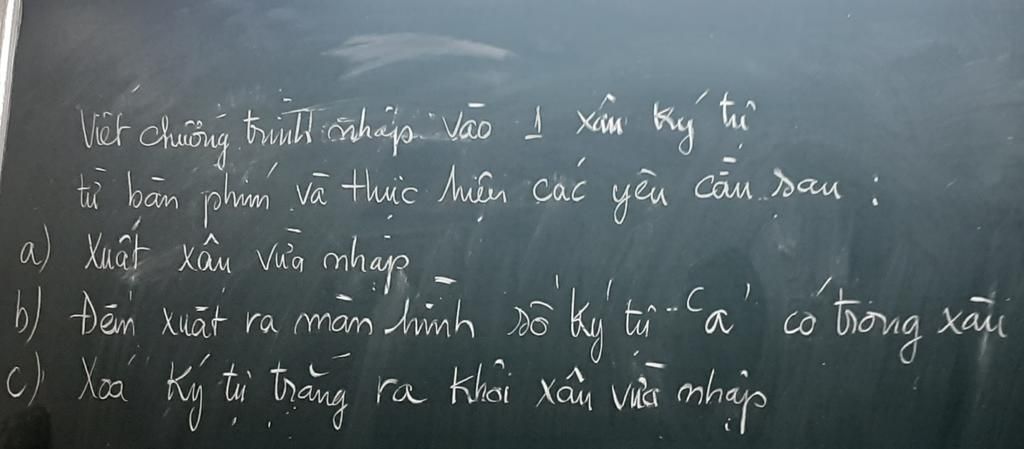 Viết chương trình nhập vào 1 xâu ký tự
từ bàn phím và thực hiện các yêu cầu sau :
a) Xuất xâu vừa nhập
b) Đếm xuất ra màn hình số ký tự 'a' có trong xâu
c) Xoá ký tự trắng ra khỏi xâu vừa nhập